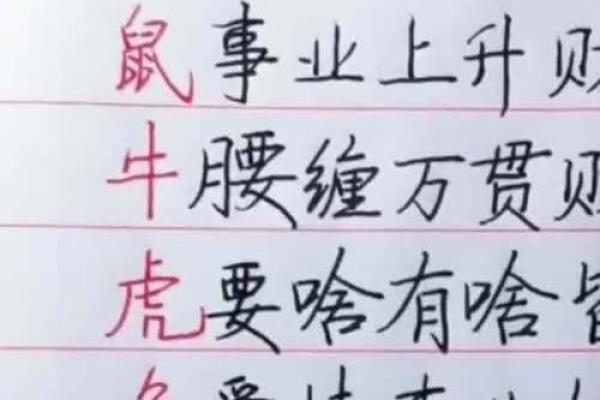 鼠事业上升财
牛腰缠万贯财
虎要啥有啥皆